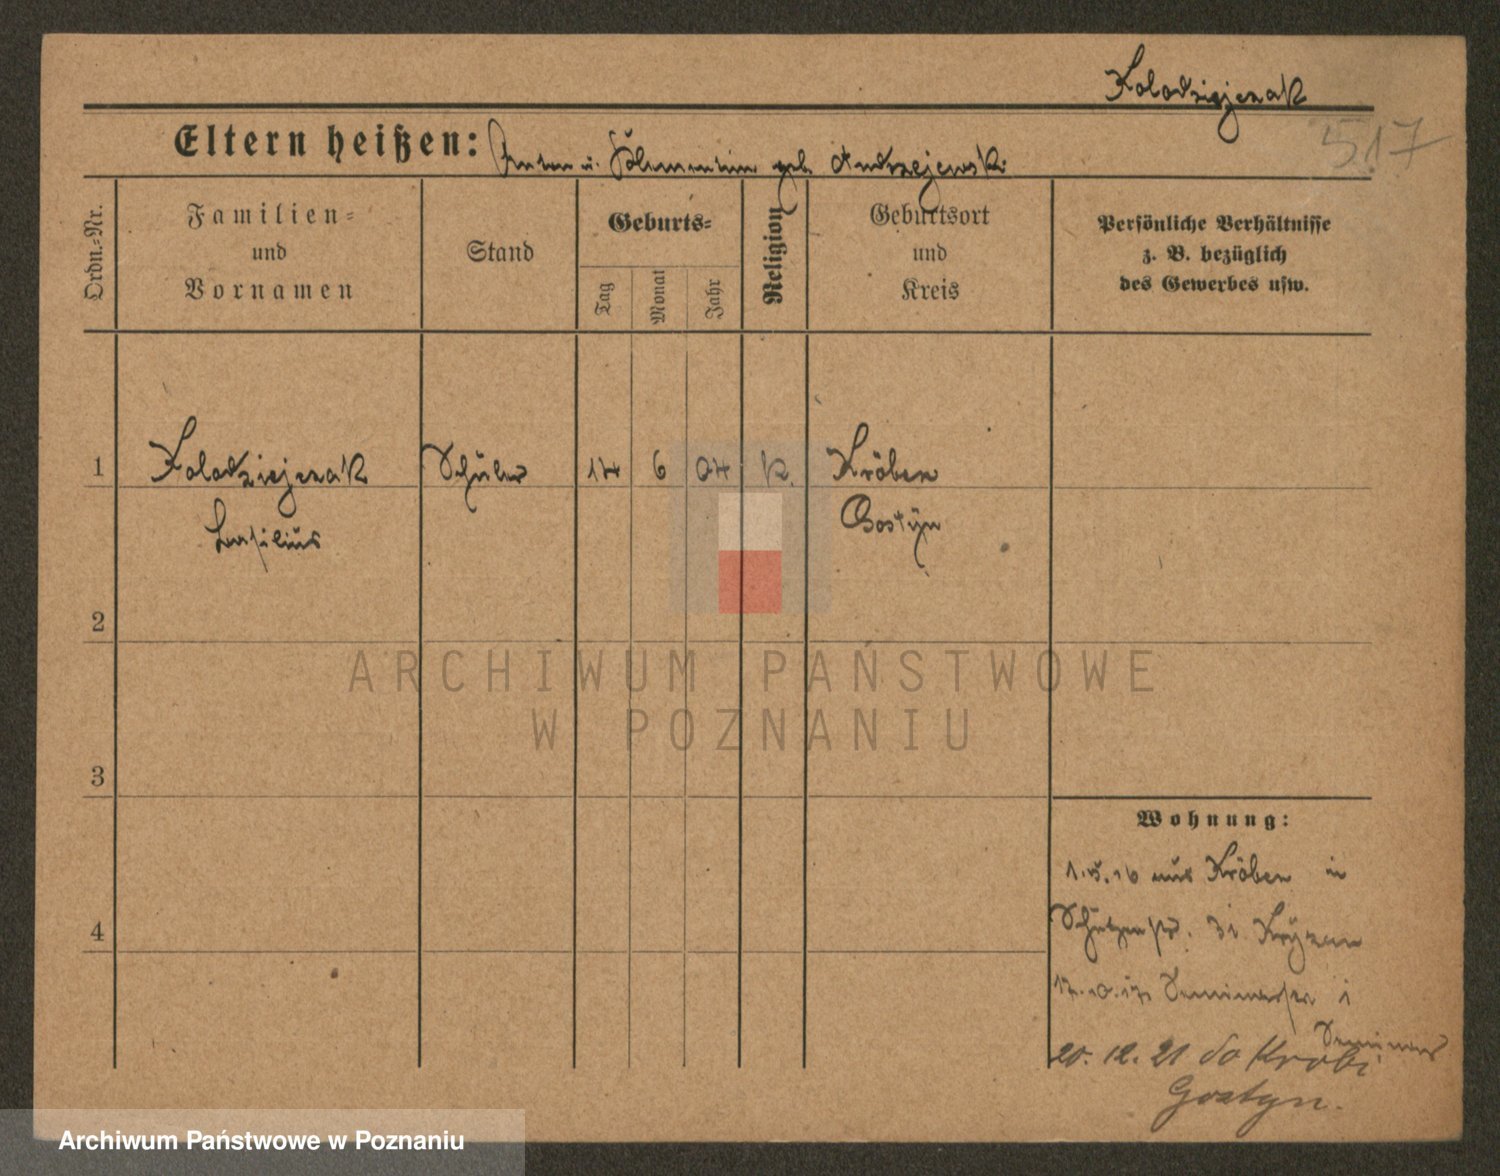 Kolodziejczak
517
Eltern heißen: u. geb. Andrzejewski
Ordn.=Nr.
Familien=
und
Vornamen
Stand
Geburts=
Tag
Monat
Jahr
Religion
Geburtsort
und
Kreis
Persönliche Verhältnisse
z. B. bezüglich
des Gewerbes usw.
1 Kolodziejczak Schüler 14 6 04 k. Kröben
Basilius Gostÿn
2
3
4
Wohnung:
1.5.16 aus Kröben in
Schützenstr. 31.
17.10.17 Seminarstr 1
Seminar
20.12.21 do Krobi
Gostyn.
ARCHIWUM PAŃSTWOWE
W POZNANIU
Archiwum Państwowe w Poznaniu